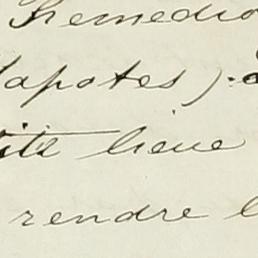 Remedio
apotes).
tite lieue
rendre l